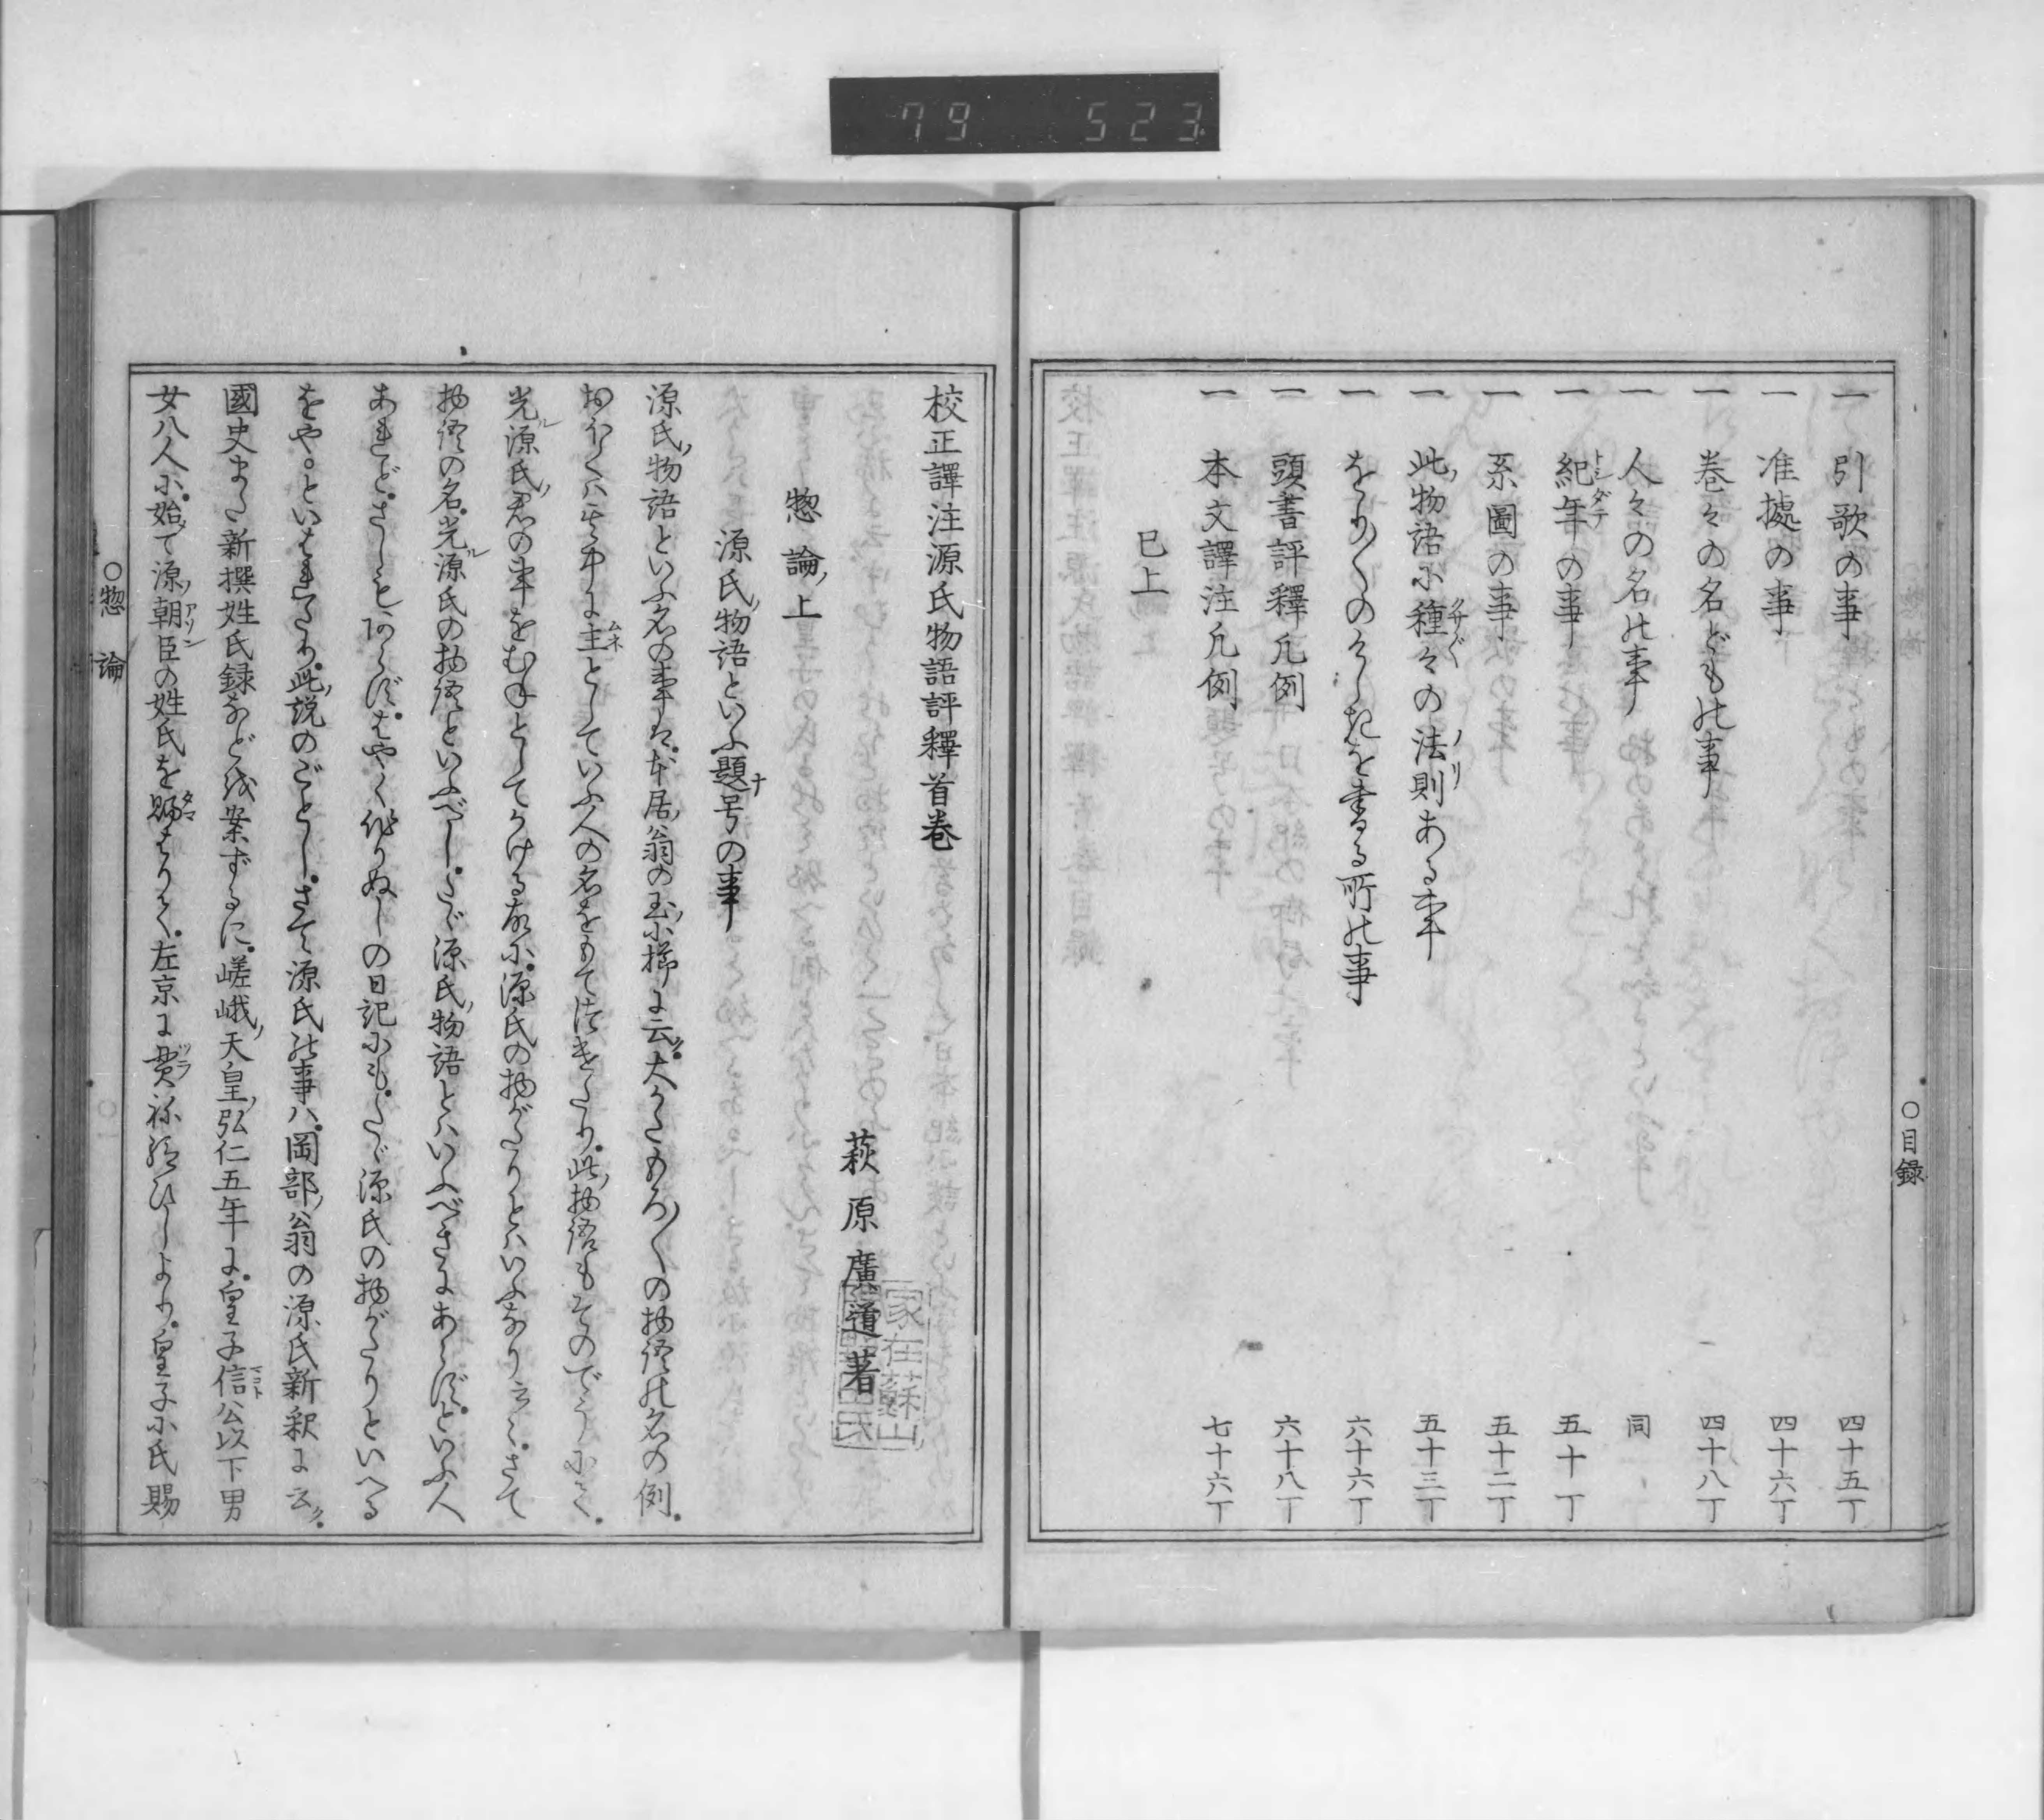 79 523
○目録
一 引歌の事 四十五丁
一 准據の事 四十六丁
一 巻々の名どもの事 四十八丁
一 人々の名の事 同
一 紀年の事 五十丁
一 系圖の事 五十二丁
一 此物語に種々の法則ある事 五十三丁
一 をり〳〵のけしきを書る所の事 六十六丁
一 頭書評釋凡例 六十八丁
一 本文譯注凡例 七十六丁
已上
校正譯注源氏物語評釋首巻
萩原廣道著
家在蘇山
惣論上
源氏物語といふ題号の事
源氏物語といふ名の事は。本居翁の玉小櫛に云。大かたもろ〳〵の物語の名の例。
おほくハ其中に主としていふ人の名をもてつけたり。此物語もそのでうにて。
光源氏君の事をむねとしてかける故に。源氏の物がたりとハいふなり云々。さて
物語の名。光源氏の物語といふべし。たゞ源氏物語とハいふべきにあらず。といふ人
あれど。さしもあらず。はやく作りぬしの日記にも。たゞ源氏の物がたりといへる
をや。といはれたり。此説のごとし。さて源氏の事ハ。岡部翁の源氏新釈に云。
國史また新撰姓氏録などを案ずるに。嵯峨天皇弘仁五年に。皇子信公以下男
女八人に。始て源朝臣の姓氏を賜はりて。左京に貫給ひしより。皇子に氏賜
○惣論